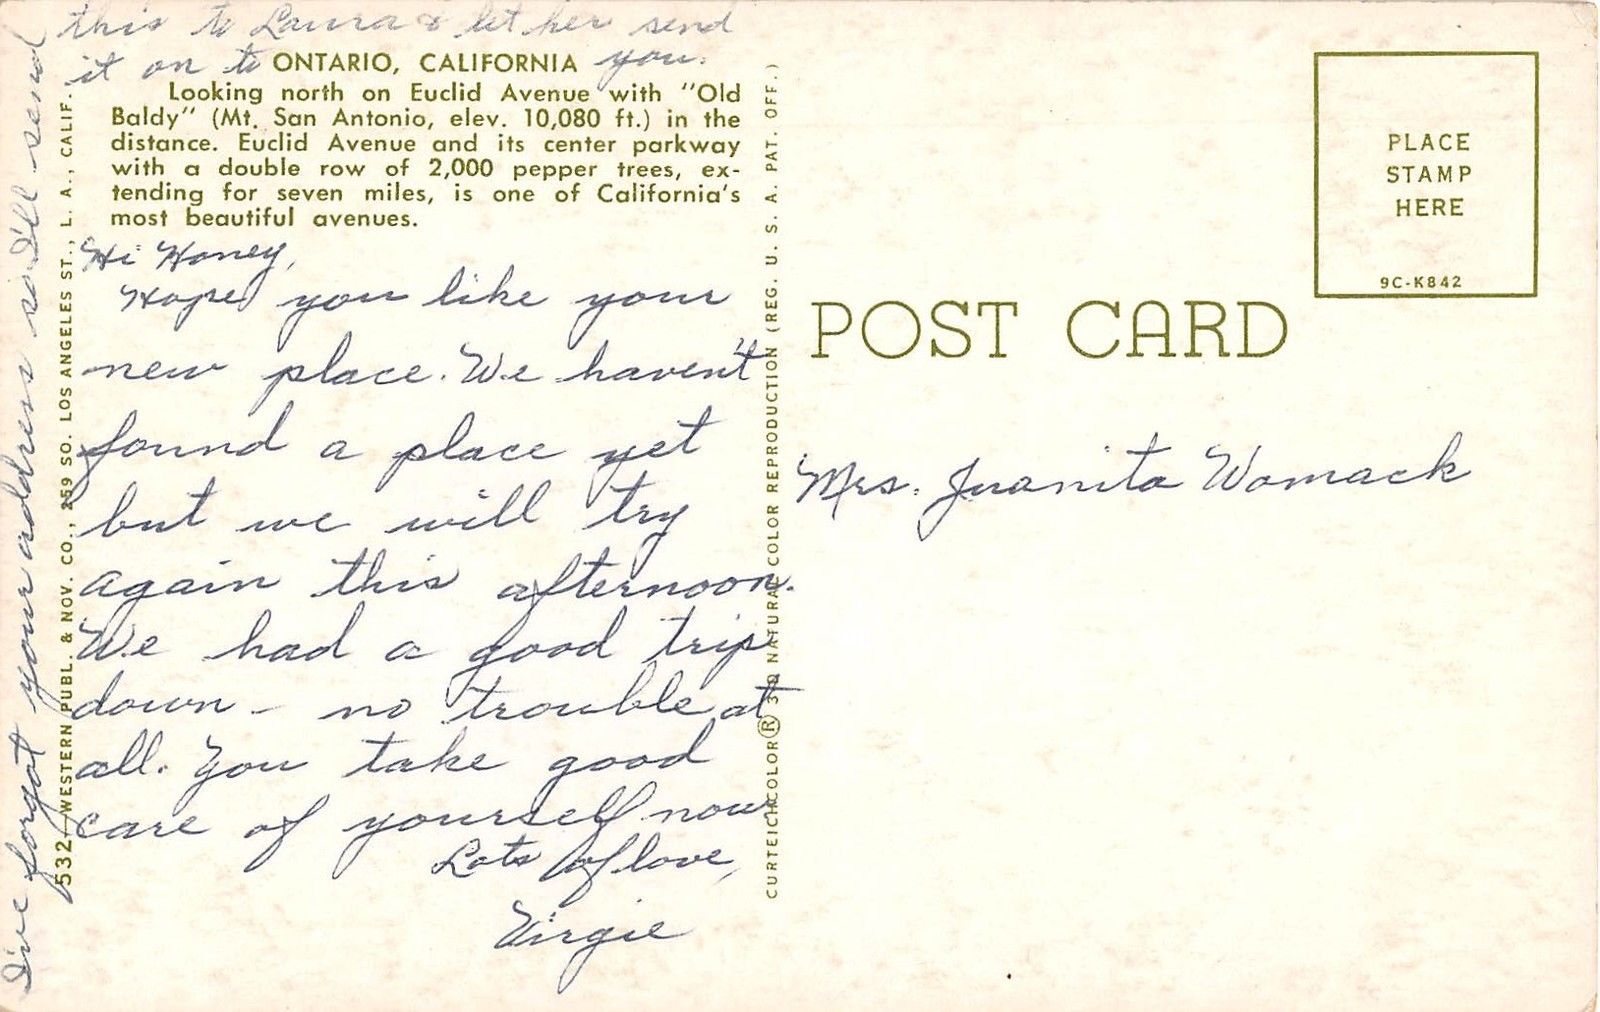 I've forgot your address so I'll send
this to Laura & let her send
it on to you.
ONTARIO, CALIFORNIA
Looking north on Euclid Avenue with "Old
Baldy" (Mt. San Antonio, elev. 10,080 ft.) in the
distance. Euclid Avenue and its center parkway
with a double row of 2,000 pepper trees, ex-
tending for seven miles, is one of California's
most beautiful avenues.
Hi Honey,
Hope you like your
new place. We haven't
found a place yet
but we will try
again this afternoon.
We had a good trip
down - no trouble at
all. You take good
care of yourself now
Lots of love,
Virgie
532—WESTERN PUBL. & NOV. CO., 259 SO. LOS ANGELES ST., L. A., CALIF.
CURTEICHCOLOR® 3-D NATURAL COLOR REPRODUCTION (REG. U. S. A. PAT. OFF.)
PLACE
STAMP
HERE
9C-K842
POST CARD
Mrs. Juanita Womack